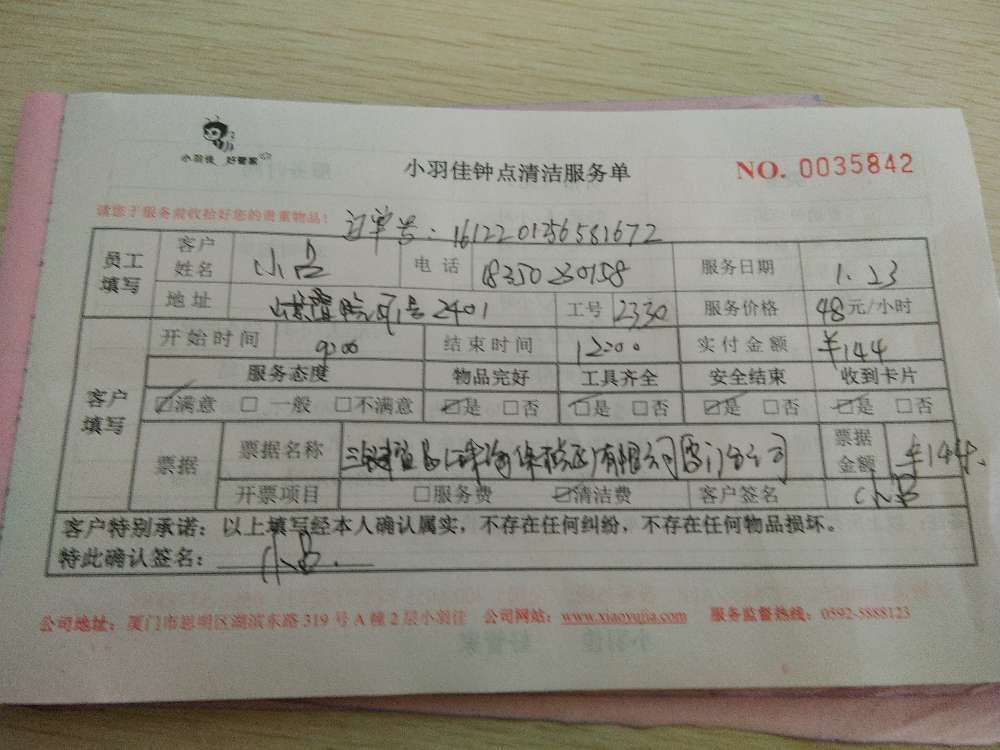 小羽佳 好管家
小羽佳钟点清洁服务单
NO. 0035842
请您于服务前收拾好您的贵重物品!
订单号:161220156581672
员工填写
客户姓名 小吕 电话 18350230158 服务日期 1.23
地址 号2401 工号 2330 服务价格 48元/小时
客户填写
开始时间 9:00 结束时间 12:00 实付金额 ¥144
服务态度 物品完好 工具齐全 安全结束 收到卡片
☑满意 □一般 □不满意 ☑是 □否 ☑是 □否 ☑是 □否 ☑是 □否
票据 票据名称 有限公司厦门分公司 票据金额 ¥144.
开票项目 □服务费 ☑清洁费 客户签名 小吕
客户特别承诺:以上填写经本人确认属实,不存在任何纠纷,不存在任何物品损坏。
特此确认签名: 小吕.
公司地址:厦门市思明区湖滨东路319号A幢2层小羽佳 公司网站:www.xiaoyujia.com 服务监督热线:0592-5888123